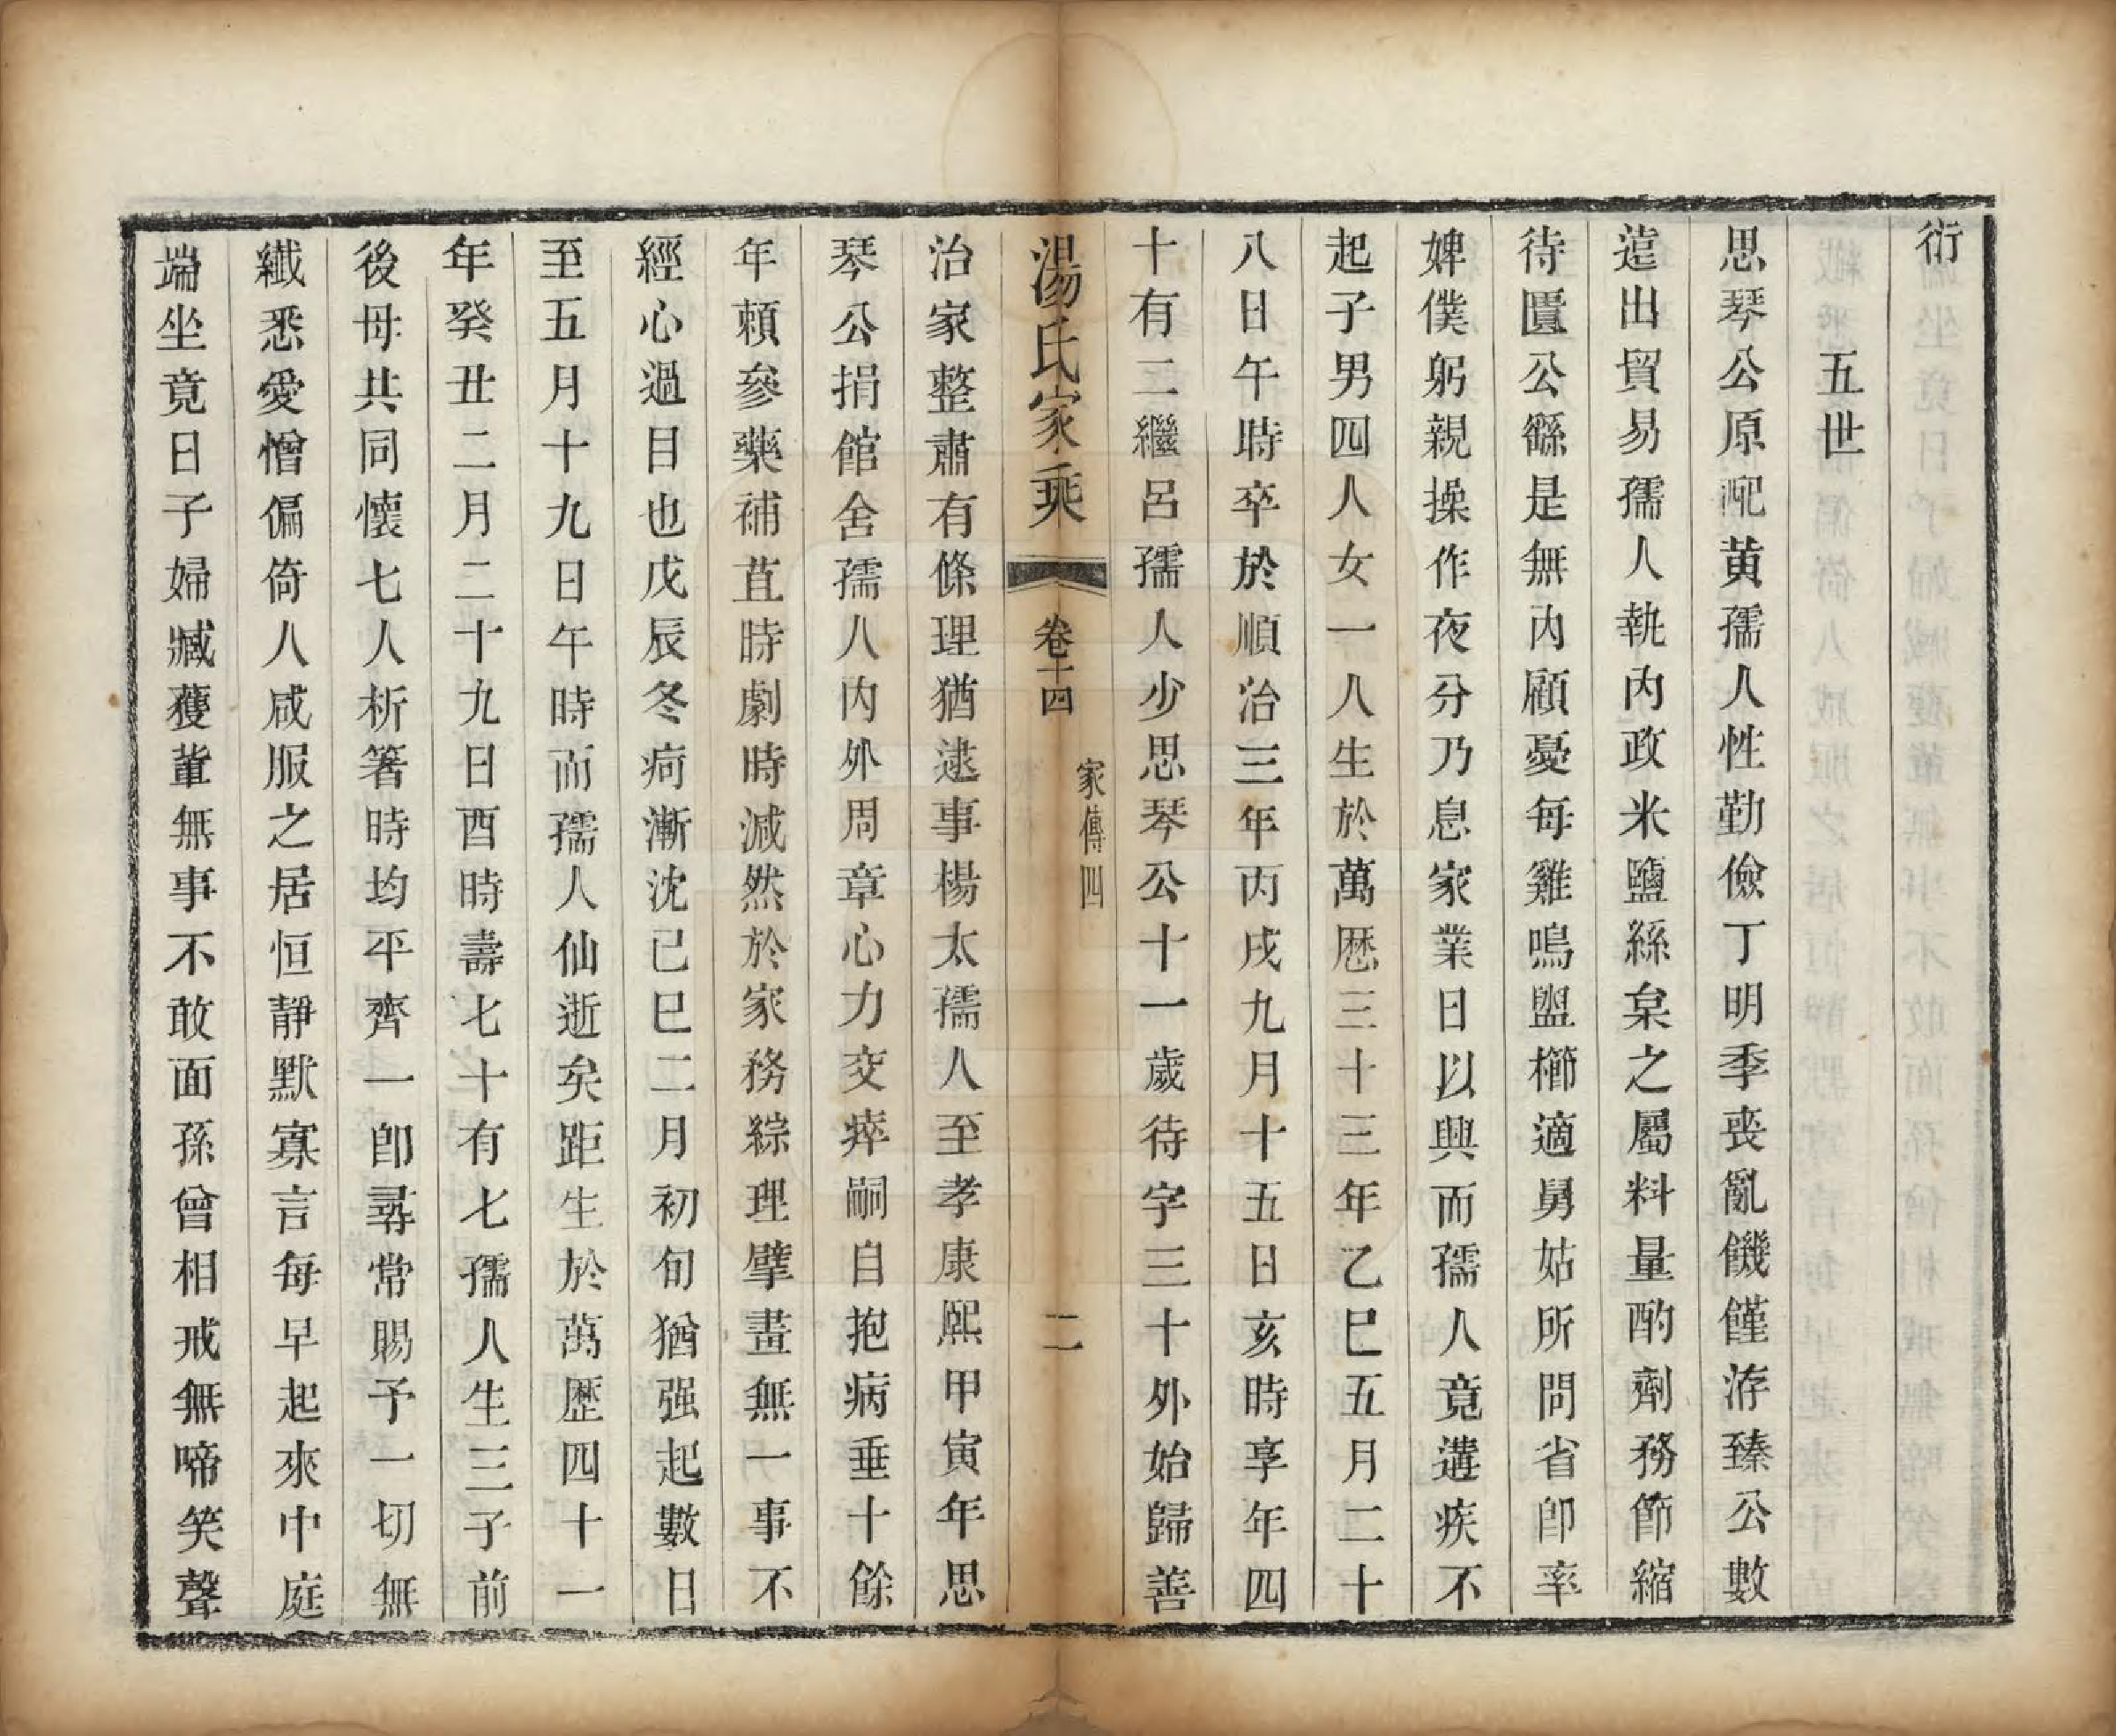 衍
五世
思琴公原配黄孺人性勤儉丁明季丧亂饑饉洊臻公數
遠出貿易孺人執内政米鹽絲枲之屬料量酌劑務節縮
待匱公繇是無内顧憂每雞鳴盥櫛適舅姑所問省卽率
婢僕躬親操作夜分乃息家業日以興而孺人竟遘疾不
起子男四人女一人生於萬厯三十三年乙巳五月二十
八日午時卒於順治三年丙戌九月十五日亥時享年四
十有二繼呂孺人少思琴公十一歲待字三十外始歸善
湯氏家乘
卷十四
家傳四
二
治家整肅有條理猶逮事楊太孺人至孝康熙甲寅年思
琴公捐館舍孺人内外周章心力交瘁嗣自抱病垂十餘
年頼參藥補苴時劇時減然於家務綜理擘畫無一事不
經心過目也戊辰冬疴漸沈已巳二月初旬猶强起數日
至五月十九日午時而孺人仙逝矣距生於萬歷四十一
年癸丑二月二十九日酉時壽七十有七孺人生三子前
後母共同懷七人析箸時均平齊一卽尋常賜予一切無
纖悉愛憎偏倚人咸服之居恒靜默寡言每早起來中庭
端坐竟日子婦臧獲輩無事不敢面孫曾相戒無啼笑聲